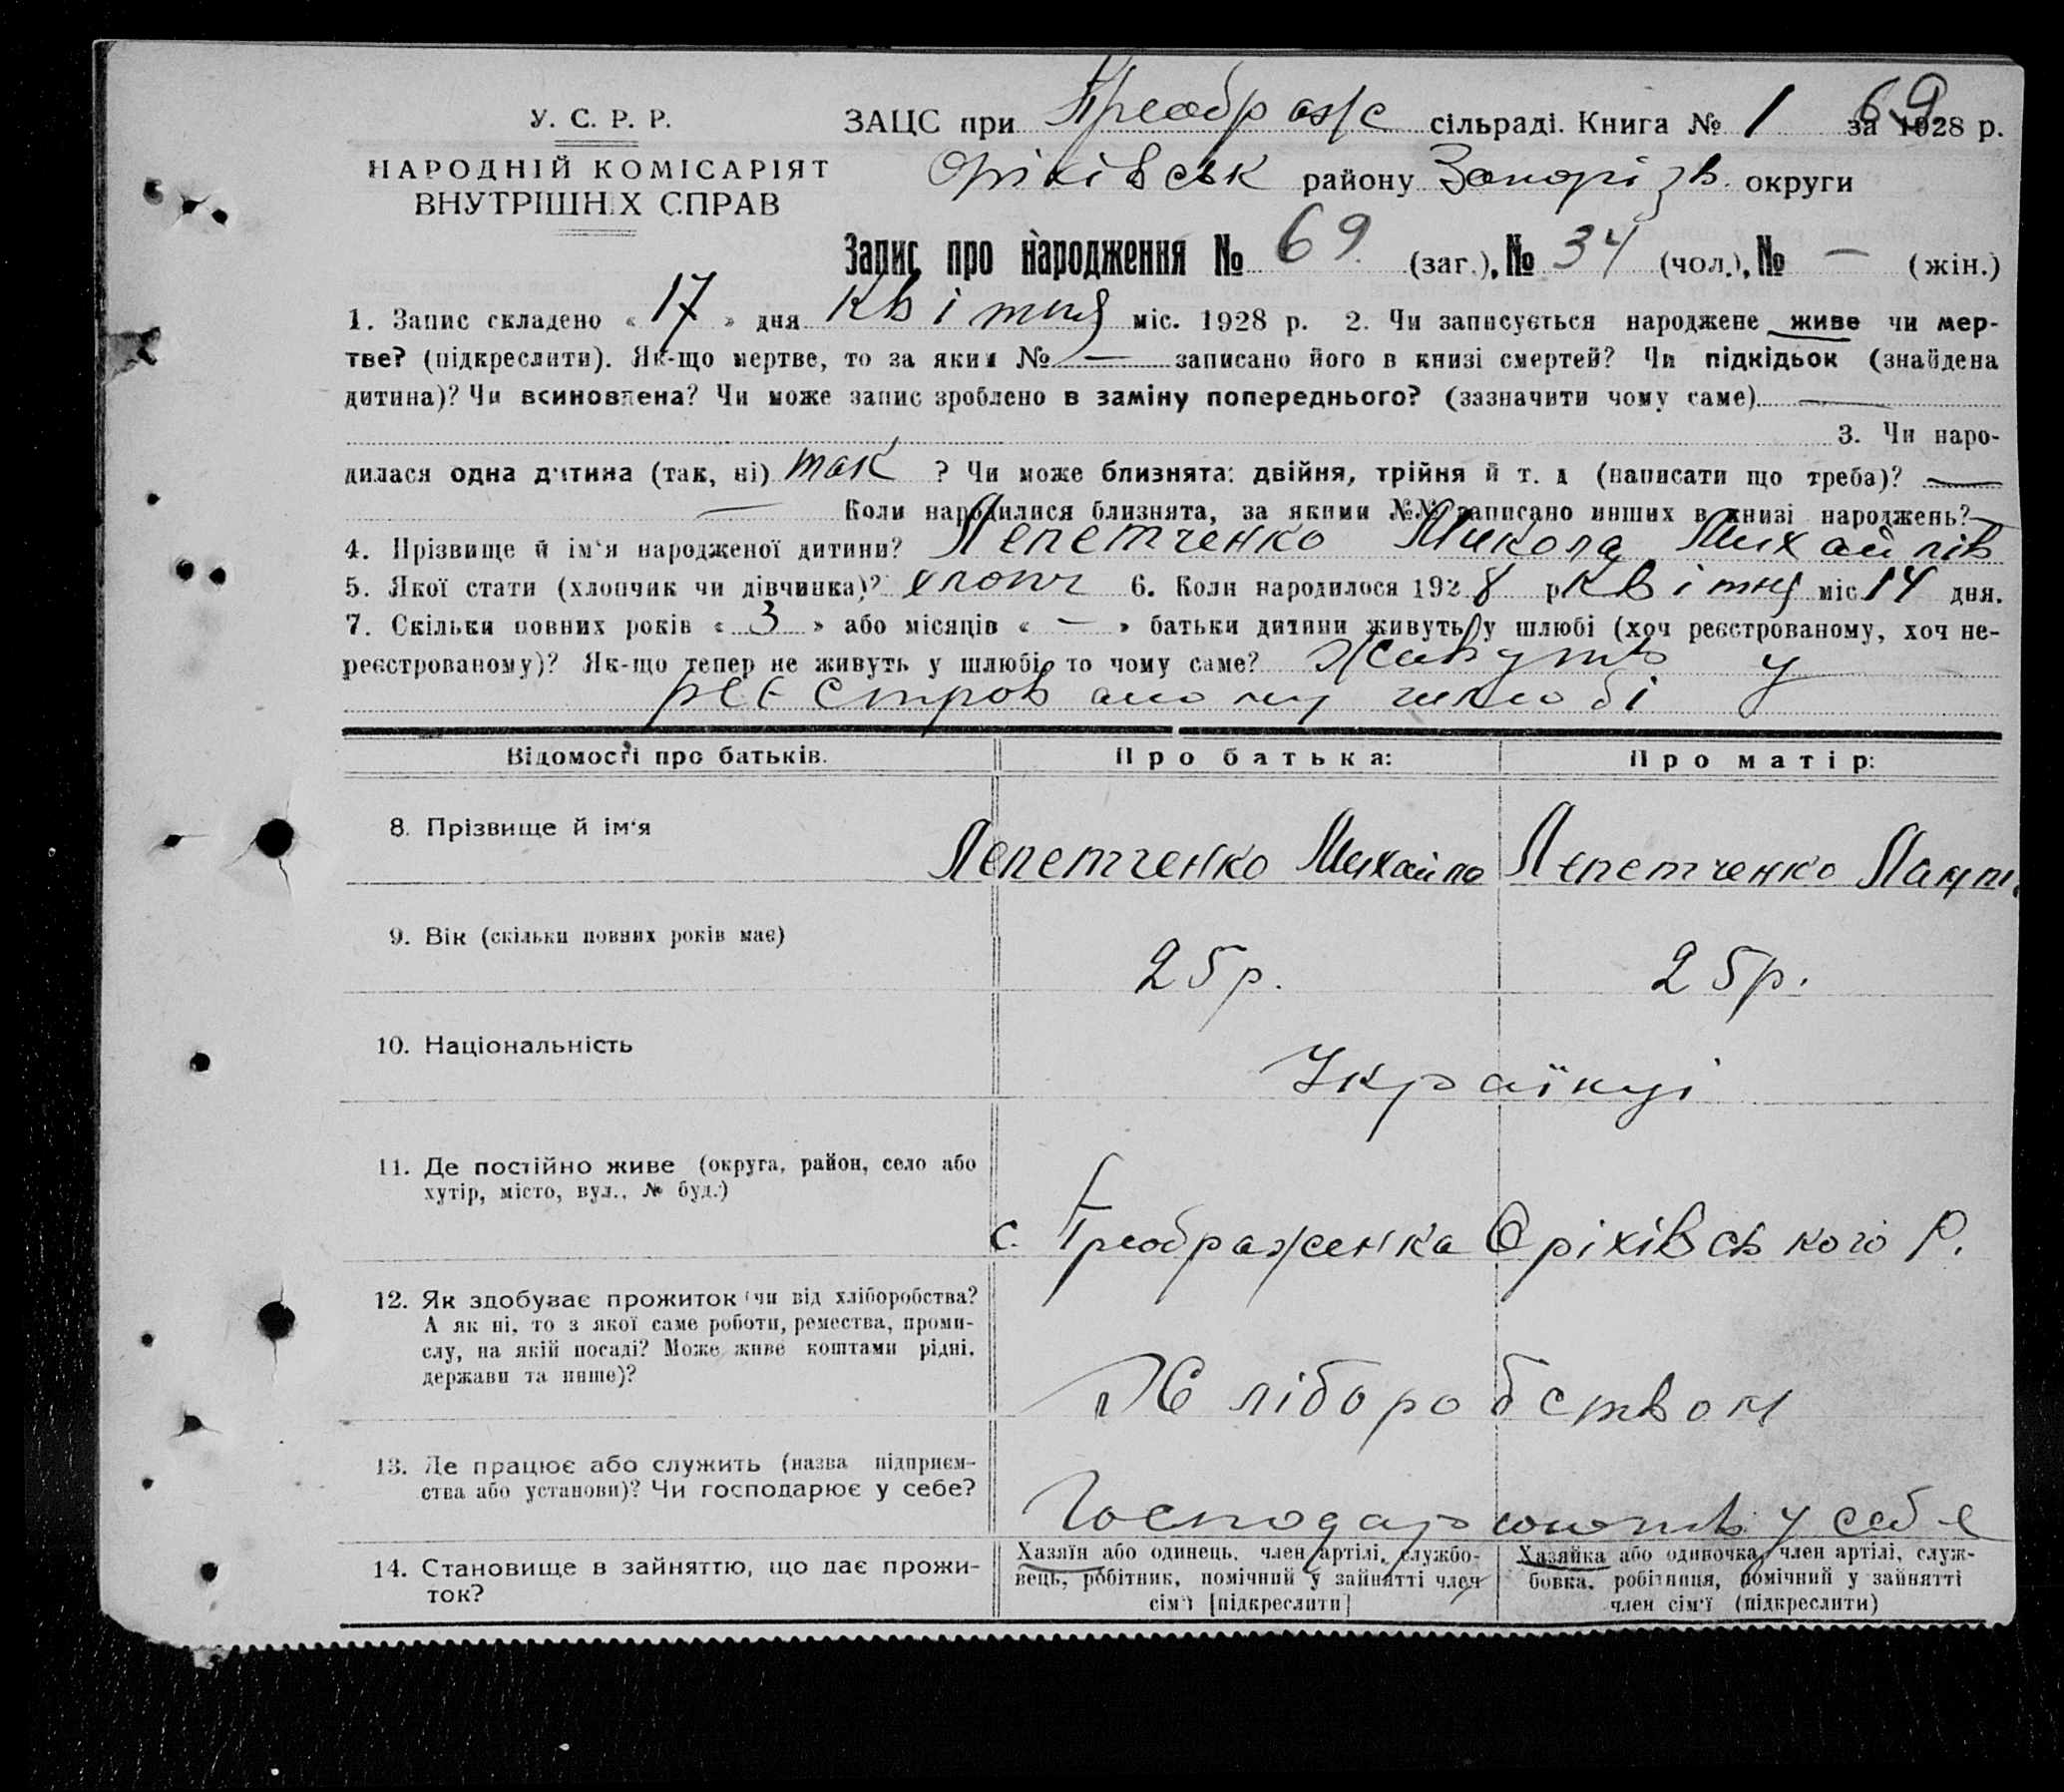 69
У. С. Р. Р.
НАРОДНІЙ КОМІСАРІЯТ
ВНУТРІШНІХ СПРАВ
ЗАЦС при Преображ сільраді. Книга № 1 за 1928 р.
Оріхівськ району Запоріз. округи
Запис про народження № 69 (заг.), № 34 (чол.), № — (жін.)
1. Запис складено « 17 » дня Квітня міс. 1928 р. 2. Чи записується народжене живе чи мер-
тве? (підкреслити). Як-що мертве, то за яким № — записано його в книзі смертей? Чи підкідьок (знайдена
дитина)? Чи всиновлена? Чи може запис зроблено в заміну попереднього? (зазначити чому саме) —
3. Чи наро-
дилася одна дитина (так, ні) так ? Чи може близнята: двійня, трійня й т. д (написати що треба)? —
— Коли народилися близнята, за якими №№ записано инших в книзі народжень? —
4. Прізвище й ім'я народженої дитини? Лепетченко Микола Михайлів
5. Якої стати (хлопчик чи дівчинка)? хлопч 6. Коли народилося 1928 р Квітня міс 14 дня.
7. Скільки повних років « 3 » або місяців « — » батьки дитини живуть у шлюбі (хоч реєстрованому, хоч не-
реєстрованому)? Як-що тепер не живуть у шлюбі, то чому саме? Живуть у
реєстрованому шлюбі
Відомості про батьків. Про батька: Про матір:
8. Прізвище й ім'я Лепетченко Михайло Лепетченко
9. Вік (скільки повних років має) 25 р. 25 р.
10. Національність Українці
11. Де постійно живе (округа, район, село або
хутір, місто, вул., № буд.)
с. Преображенка Оріхівського Р.
12. Як здобуває прожиток (чи від хліборобства?
А як ні, то з якої саме роботи, ремества, проми-
слу, на якій посаді? Може живе коштами рідні,
держави та инше)?
Хліборобством
13. Де працює або служить (назва підприєм-
ства або установи)? Чи господарює у себе?
Господарюють у себе
14. Становище в зайняттю, що дає прожи-
ток?
Хазяїн або одинець, член артілі, службо-
вець, робітник, помічний у зайнятті член
сім'ї [підкреслити]
Хазяйка або одиночка, член артілі, служ-
бовка, робітниця, помічний у зайнятті
член сім'ї (підкреслити)